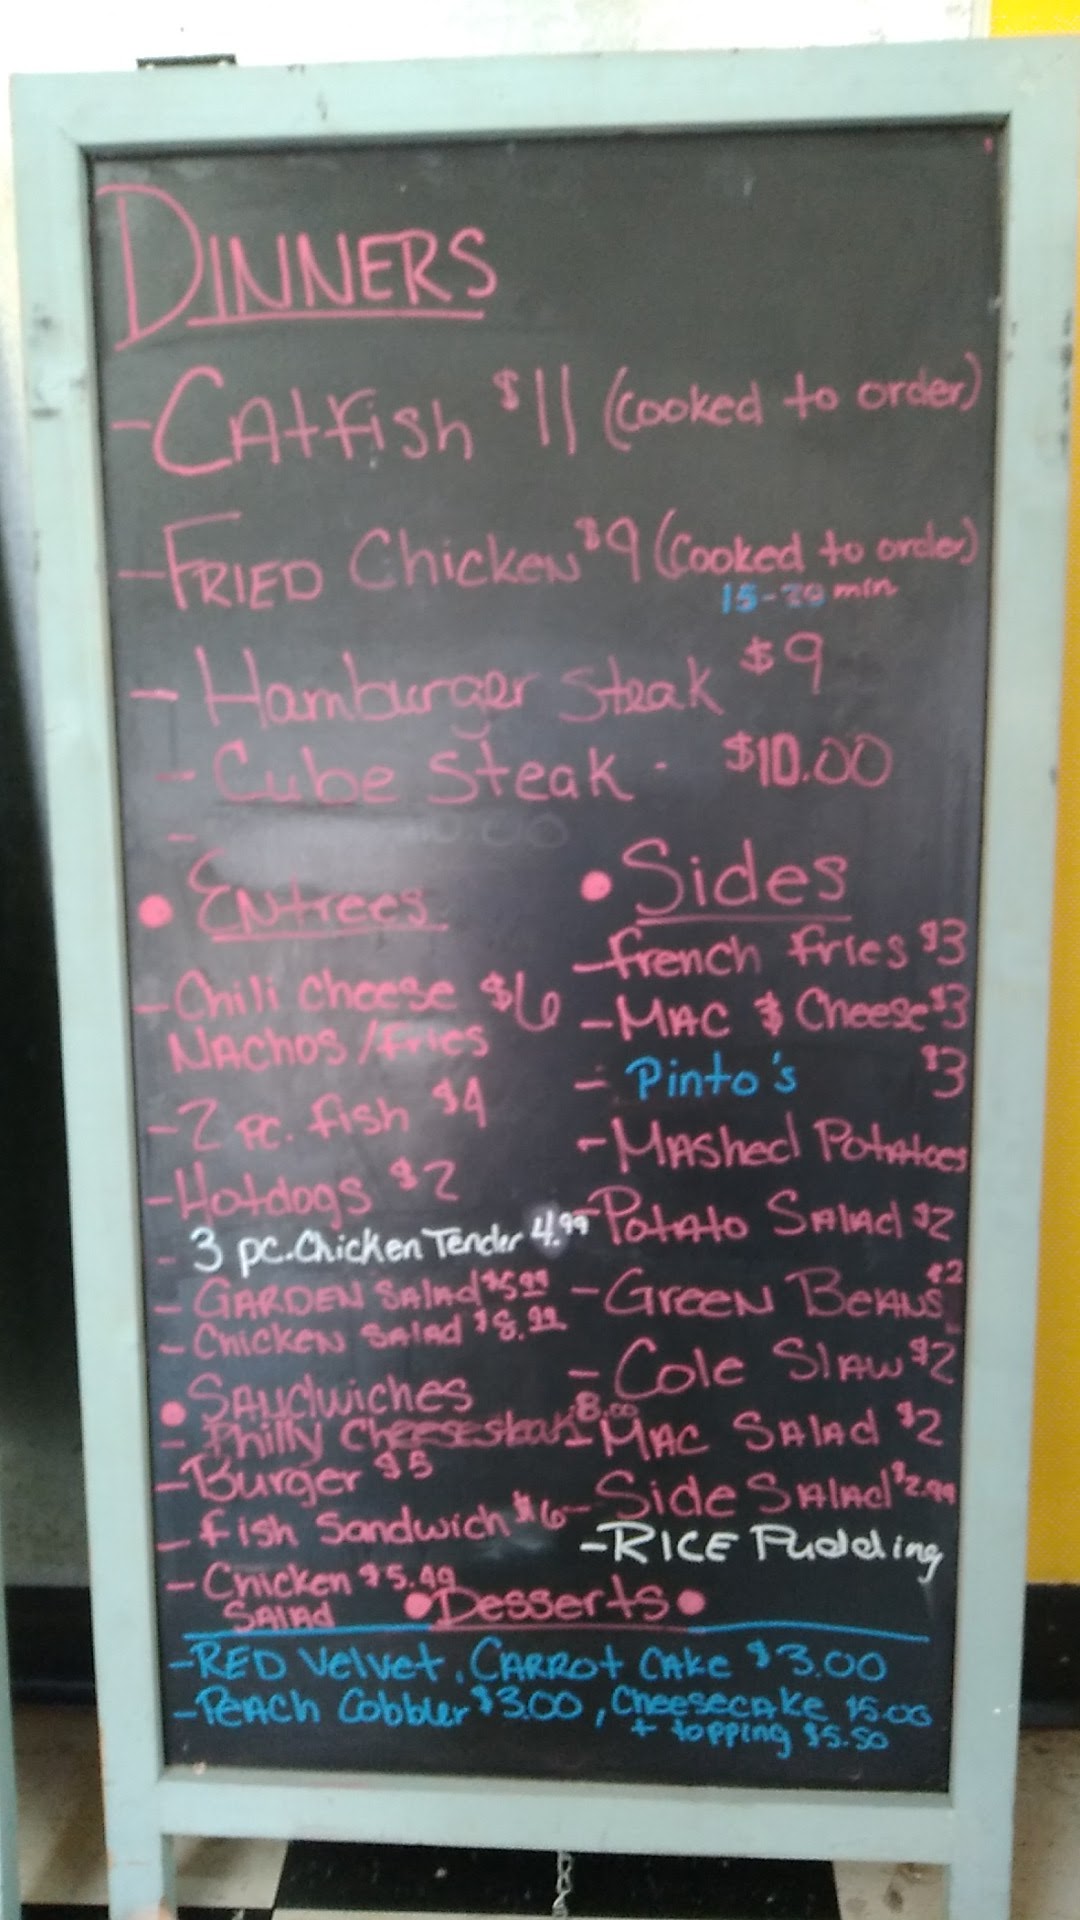 DINNERS
- Catfish $11 (Cooked to order)
- FRIED Chicken $9 (Cooked to order)
15-20 min
- Hamburger Steak $9
- Cube Steak - $10.00
-
• Entrees
- Chili Cheese $6
Nachos / Fries
- 2 pc. fish $4
- Hotdogs $2
- 3 pc. Chicken Tender 4.99
- GARDEN Salad $5.99
- Chicken Salad $8.99
• Sandwiches
- Philly Cheesesteak 8.00
- Burger $5
- fish Sandwich $6
- Chicken $5.49
Salad
• Sides
- french fries $3
- MAC & Cheese $3
- Pinto's $3
- Mashed Potatoes
- Potato Salad $2
- Green Beans $2
- Cole Slaw $2
- MAC Salad $2
- Side Salad $2.99
- RICE Pudding
• Desserts •
- RED Velvet, CARROT CAke $3.00
- PEACH Cobbler $3.00, Cheesecake $5.00
+ topping $5.50